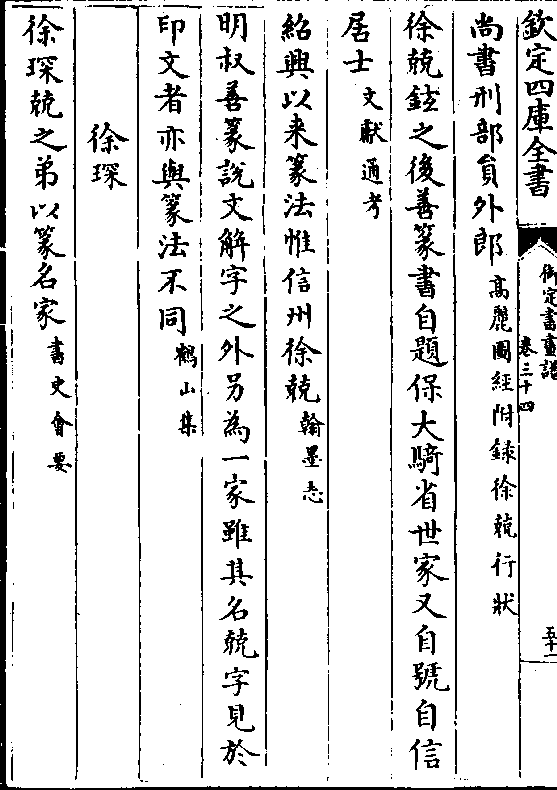 欽定四庫全書
御定書畫譜
卷三十四
五十一
尚書刑部員外郎高麗圖經附錄徐兢行狀
徐兢鉉之後善篆書自題保大騎省世家又自號自信
居士文獻通考
紹興以来篆法惟信州徐兢翰墨志
明叔善篆說文解字之外另為一家雖其名兢字見於
印文者亦與篆法不同鶴山集
徐琛
徐琛兢之弟以篆名家書史會要